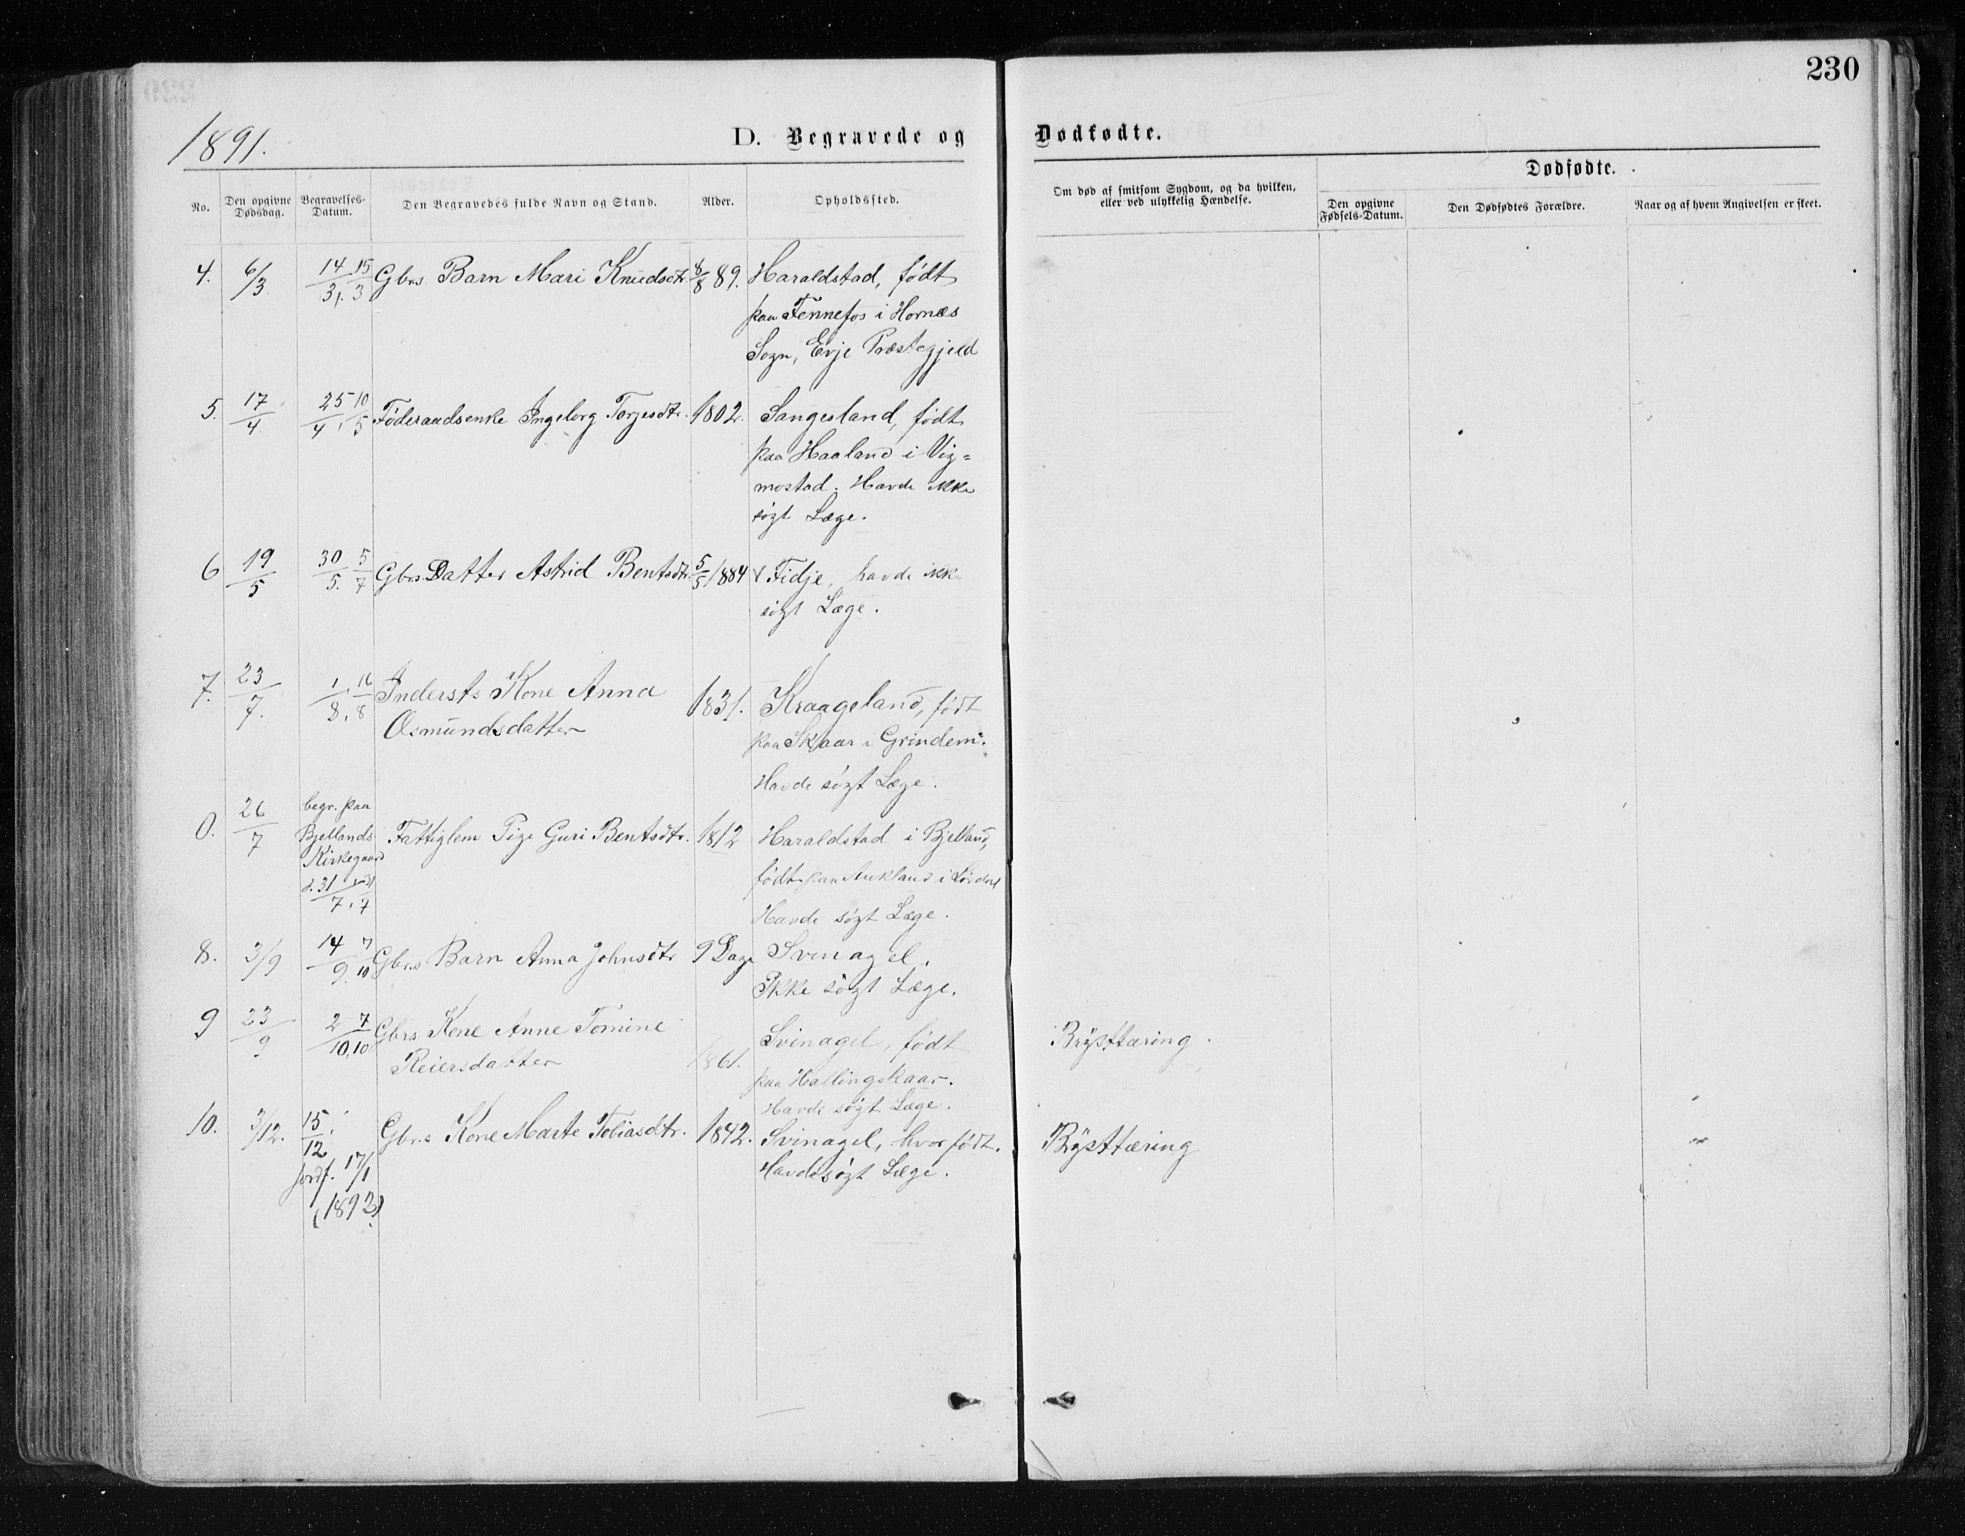 230
1891.
D. Begravede og Dødfødte.
No.
Den opgivne Dødsdag.
Begravelses-Datum.
Den Begravedes fulde Navn og Stand.
Alder.
Opholdssted.
Om død af smitsom Sygdom, og da hvilken,
eller ved ulykkelig Hændelse.
Dødfødte.
Den opgivne Fødsels-Datum.
Den Dødfødtes Forældre.
Naar og af hvem Angivelsen er skeet.
4. 6/3 14/3, 15/3 Gbrs Barn Mari Knudsdtr 8/8 89. Haraldstad, født
paa Fennefos i Hornæs
Sogn, Evje Præstegjeld
5. 17/4 25/4, 10/5 Føderaadsenke Ingeborg Torjesdtr. 1802. Sangesland, født
paa Haaland i Vig=
mostad. Havde ikke
søgt Læge.
6 19/5 30/5. 5/7 Gbrs Datter Astrid Bentsdtr. 5/5 1884 Fidje, havde ikke
søgt Læge.
7. 23/7. 1/8, 16/8 Indersts Kone Anna 1831. Kraageland, født
Osmundsdatter paa Skaar i Grindem.
Havde søgt Læge.
0. 26/7 begr. paa
Bjellands
Kirkegaard
d. 31/7, 31/7 Fattiglem Pige Guri Bentsdtr. 1812 Haraldstad i Bjelland,
født paa Aukland i
Havde søgt Læge.
8. 3/9 14/9, 7/10 Gbrs Barn Anna Johnsdtr 9 Dage Svinagel.
Ikke søgt Læge.
9 23/9 2/10, 7/10 Gbrs Kone Anne Tomine 1861. Svinagel, født
Reiersdatter paa Hallingskaar.
Havde søgt Læge.
Brysttæring.
10. 3/12. 15/12 Gbrs Kone Marte Tobiasdtr. 1842. Svinagel, hvor født.
Jordf. 17/1 Havde søgt Læge.
(1892)
Brysttæring